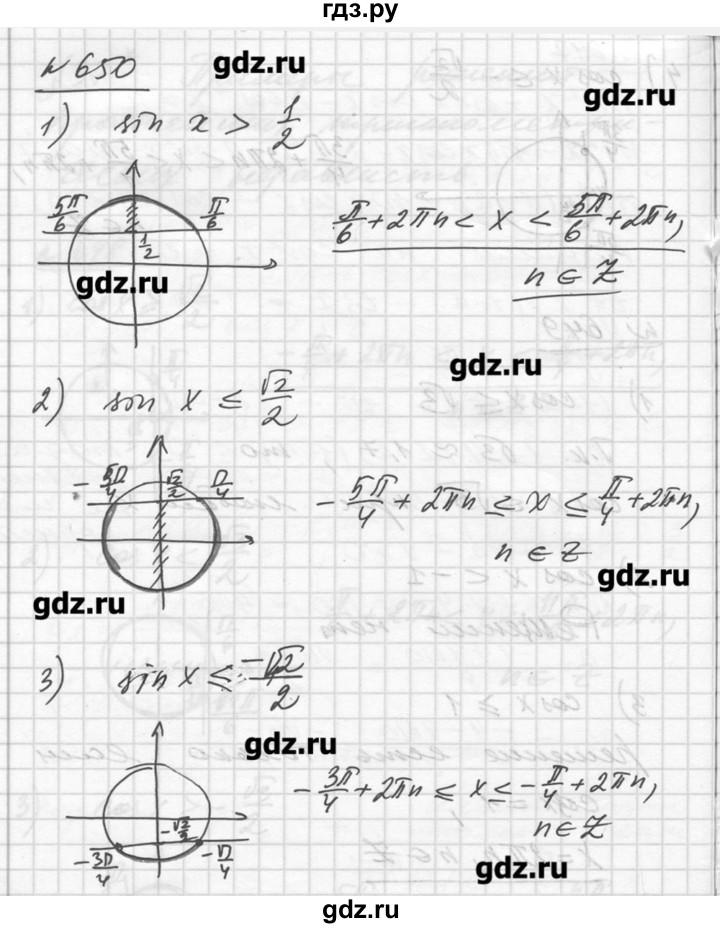 гдз.ру
№ 650
gdz.ru
gdz.ru
1) sin x > 1/2
5π/6 π/6
1/2
π/6 + 2πn < x < 5π/6 + 2πn,
n ∈ Z
gdz.ru
gdz.ru
2) sin x ≤ √2/2
- 5π/4 √2/2 π/4
- 5π/4 + 2πn ≤ x ≤ π/4 + 2πn,
n ∈ Z
gdz.ru
gdz.ru
3) sin x ≤ -√2/2
gdz.ru
- 3π/4 + 2πn ≤ x ≤ - π/4 + 2πn,
n ∈ Z
- √2/2
- 3π/4 - π/4
gdz.ru
gdz.ru